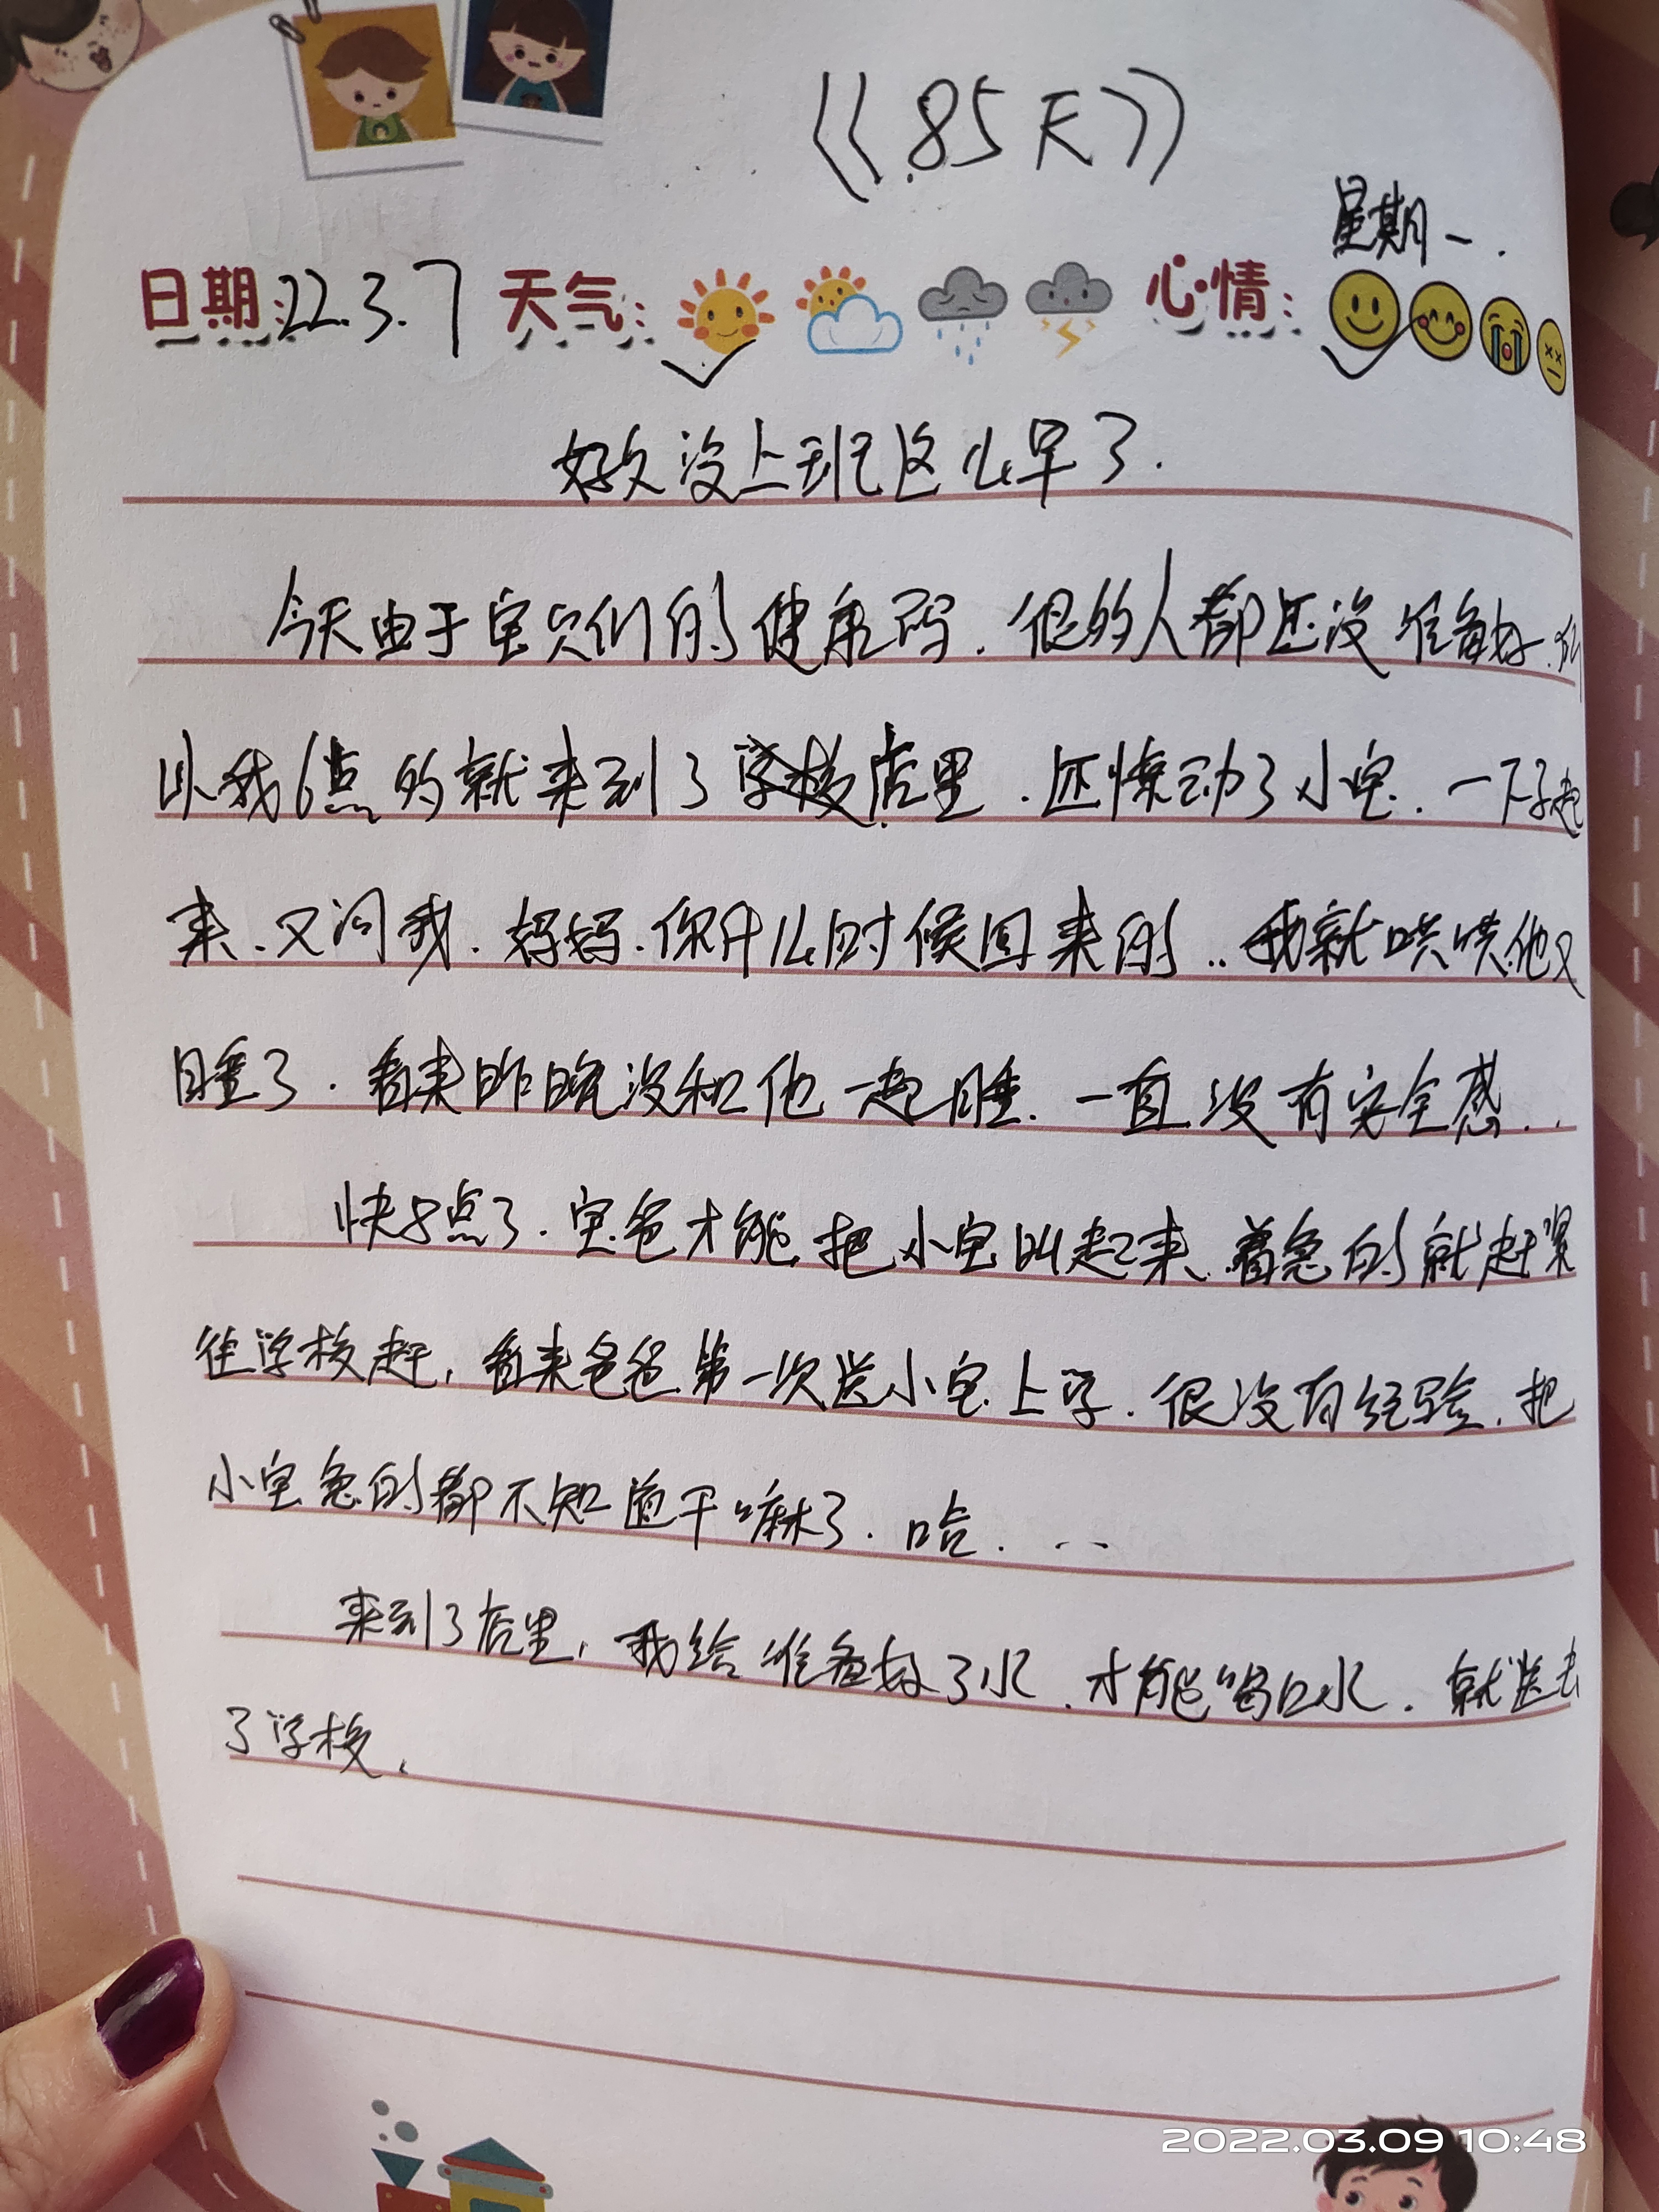 《85天》
星期一.
日期:22.3.7 天气: 心情:
好久没上班这么早了.
今天由于宝贝们的健康码.很的人都还没准备好.所
以我6点的就来到了店里.还惊动了小宝.一下子起
来.又问我.妈妈.你什么时候回来的..我就哄哄他又
睡了.看来昨晚没和他一起睡.一直没有安全感..
快8点了.宝爸才能把小宝叫起来.着急的就赶紧
往学校赶,看来爸爸第一次送小宝上学.很没有经验.把
小宝急的都不知道干嘛了.哈...
来到了店里,我给准备好了水.才能喝口水.就送去
了学校.
2022.03.09 10:48